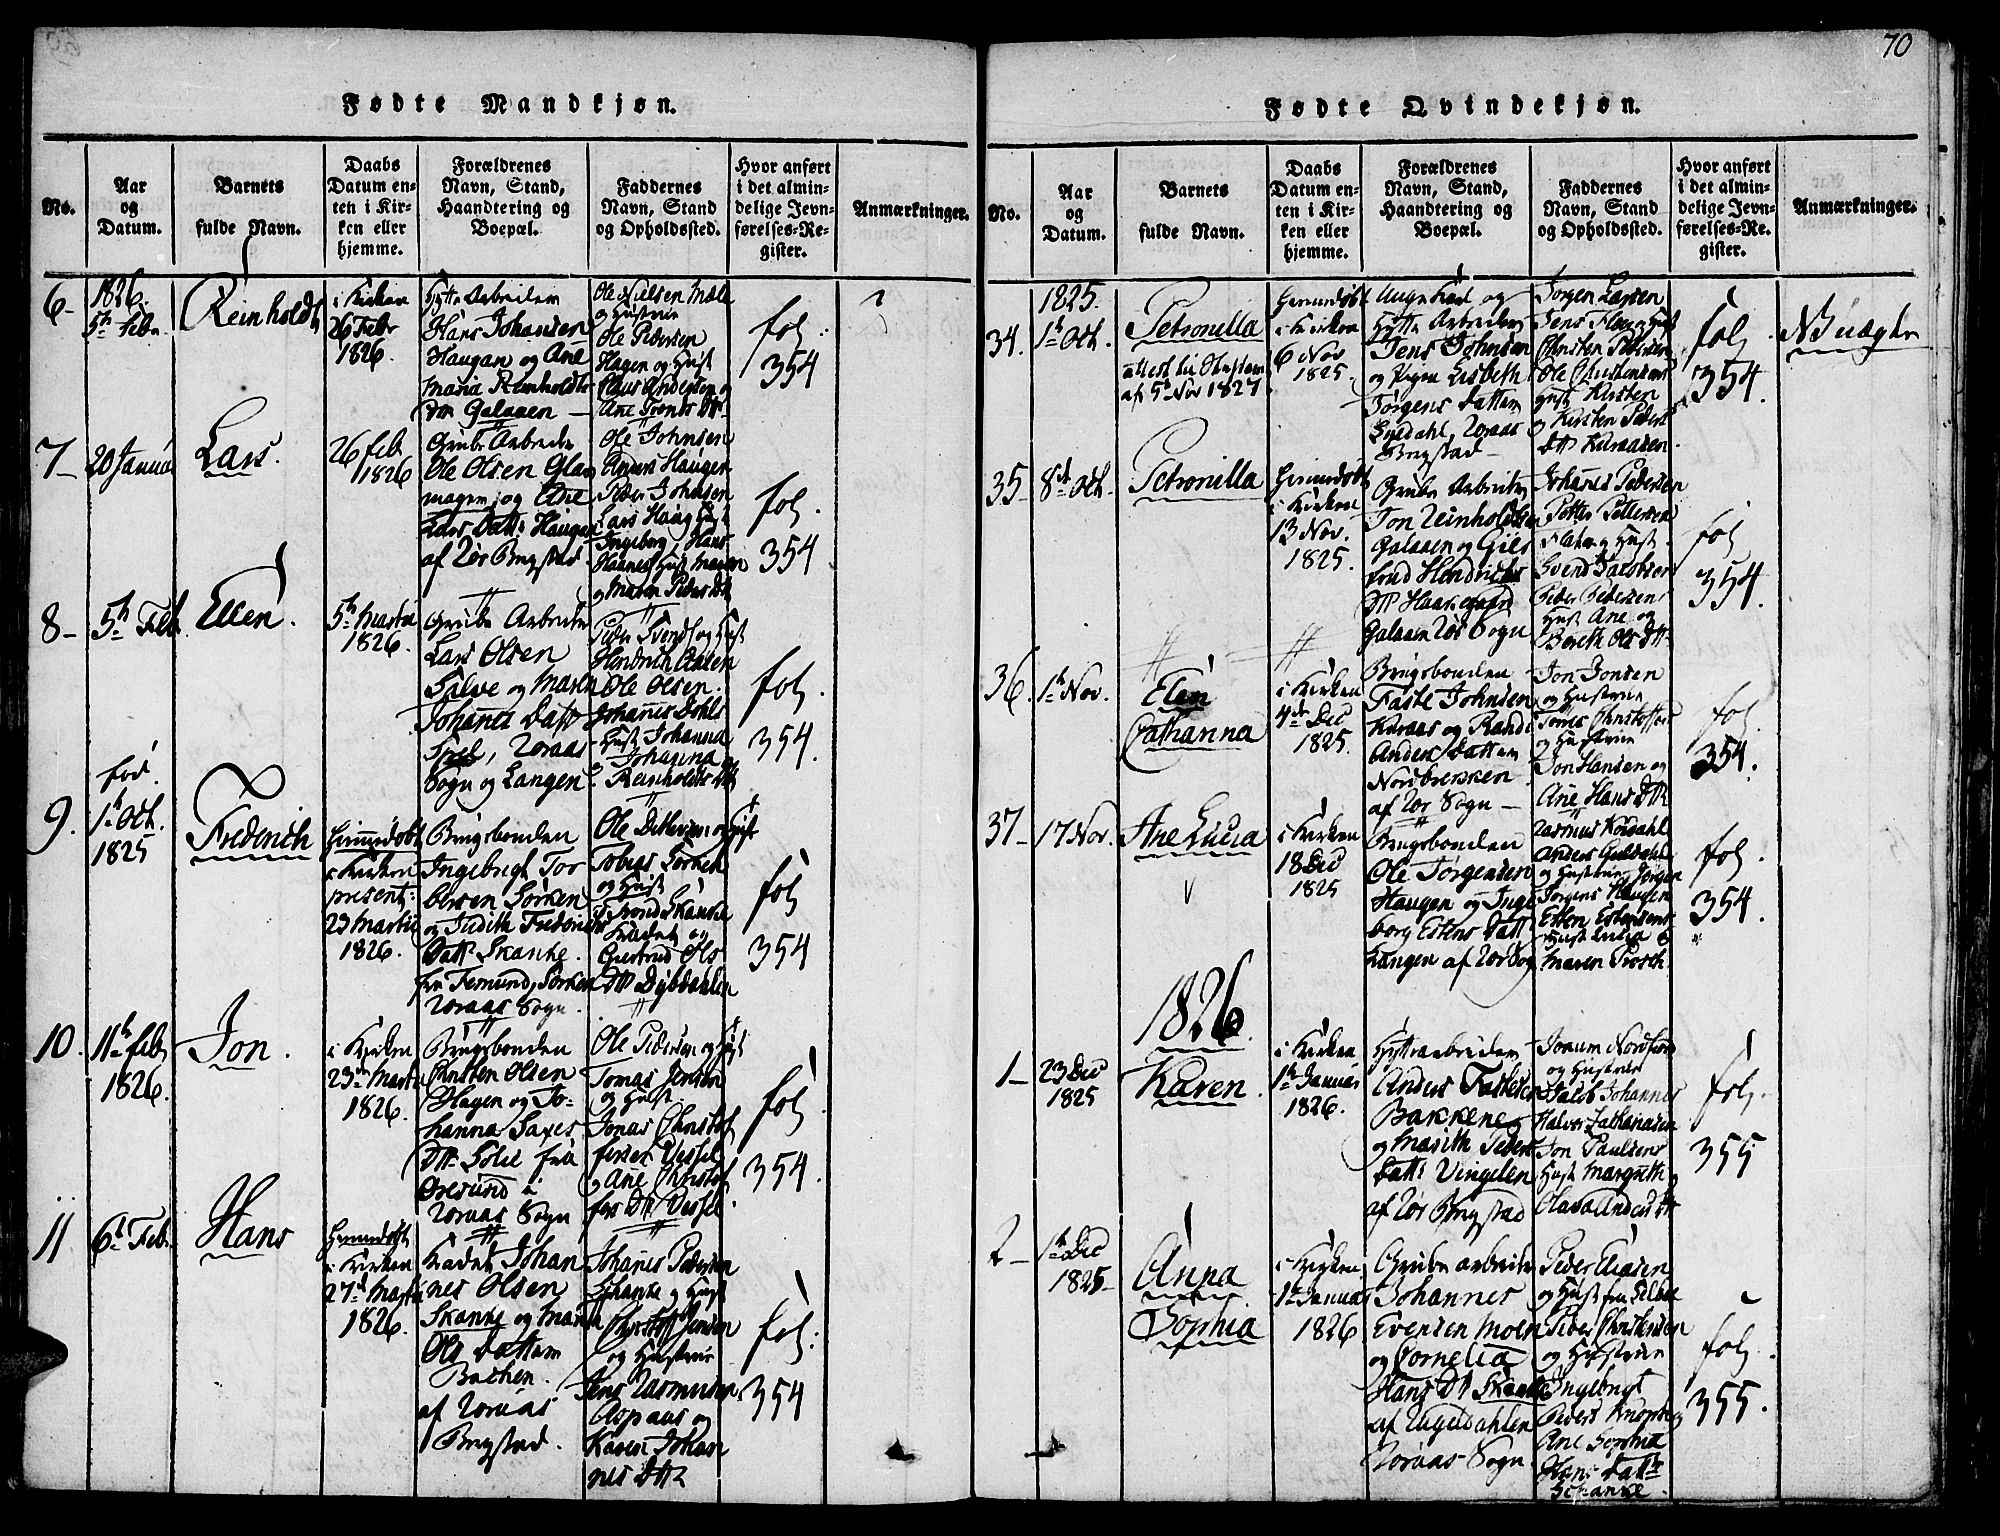 70
Fødte Mandkjøn.
No.
Aar
og
Datum.
Barnets
fulde Navn.
Daabs
Datum en-
ten i Kir-
ken eller
hjemme.
Forældrenes
Navn, Stand,
Haandtering og
Boepæl.
Faddernes
Navn, Stand
og Opholdssted.
Hvor anført
i det almin-
delige Jevn-
førelses-Re-
gister.
Anmærkninger.
6-
1826.
5h Febr.
Reinholdt
i Kirken
26 Febr
1826.
Hytte Arbeiden
Hans Johansen
Haugan og Ane
Maria Reinholdts
Galaaen
Ole Nielsen Mæle
og Hustrue
Ole Pedersen
Hagen og Hust
Claus Andersen og
Ane
fol.
354
7-
20 Januar
Lars.
26 feb
1826
Grube Arbeider
Ole Olsen
og Ane
Lars Datt: Haugen
af Rør Bergstad
Ole Johnsen
Anders Haugen
Peder Johnsen
Lars Haug Hust
Ingeborg, Hans
Hust Maren
og Maren Peders Dtt
fol.
354
8-
5h Feb
Ellen.
5h Martii
1826.
Grube Arbeider
Lars Olsen
Galve og Maren
Johannes Datt
Røraas
Sogn og Langen
Peder Svends og Hust
Hendrich Olsen
Ole Olsen.
Johannes Dohls
Hust Johanna
Johanna
Reinholdts Dtt
fol.
354.
9.
fød.
1h Oct.
1825
Frederich
Hiemmedøbt
i Kirken
present:
23 Martii
1826.
Brugsbonden
Ingebrigt Tor
bersen Sørken
og Judith Frederichs
Datt Skanke.
fra Femund, Sørken
Røraas Sogn.
Ole Ditlevsen og Hust
Tobias Sørken
og Hust
Trond Skanke
Kadet og
Giertrud Ols
Dtt Dybdahlen
fol
354
10.
11h feb
1826.
Jon.
i Kirken
23de Martii
1826.
Brugsbonden
Christen Olsen
Hagen og Jo-
hanna Saxes
Dtt. Solie fra
Øresund i
Røraas Sogn
Ole Pedersen og Hust
Tomas Jensen
og Hust.
Jonas Christof
fersen Vessel
og Ane Christof
fers Dtt Vessel
fol
354.
11
6h Feb.
Hans
Hiemmedøbt
i Kirken
27de Martii
1826.
Kadet Johan
nes Olsen
Skanke og Marith
Ols Datter
Bachen.
af Røraas
Bergstad.
Johanes Pedersen
Schanke og Hust
Christof Jensen
og Hustrue
Jens Rasmusen
Aspaas og
Karen Johan
nes Dtt
fol.
354
Fødte Qvindekjøn.
No.
Aar
og
Datum.
Barnets
fulde Navn.
Daabs
Datum en-
ten i Kir-
ken eller
hjemme.
Forældrenes
Navn, Stand,
Haandtering og
Boepæl.
Faddernes
Navn, Stand
og Opholdssted.
Hvor anført
i det almin-
delige Jevn-
førelses-Re-
gister.
Anmærkninger.
34.
1825.
1h Oct.
Petronilla
attest
af 5h Nov 1827
Hiemmedøbt
i Kirken
6 Nov
1825.
Unge Karl og
Hytte Arbeiden
Jens Johnsen
og Pigen Lisbeth
Jørgens Datter
Lysdahl, Røraas
Bergstad
Jørgen Larsen
Jens Floer og Hust
Christen Pedersen
Ole Christensens
Hust Kirsten
og Kirsten Peders
Dtt Kuraasen
fol.
354.
NB uægte
35-
8de Oct.
Petronilla
Hiemmedøbt
i Kirken
13 Nov.
1825.
Grube Arbeider
Jon Reinholdsen
Galaaen og Gils
fred Hendrichs
Dtt Haarsgaard
Galaaen Rør Sogn
Johanes Pedersen
Petter Pettersen
og Hust
Svend Jacobsen
Peder Pedersens
Hust Ane og
Bereth Ols Dtt
fol
354.
36.
1h Nov.
Elen
Cathanna
i Kirken
4de Dec
1825.
Brugsbonden
Faste Johnsen
Kuraas og Randi
Anders Datter
Nordbrekken
af Rør Sogn
Jon Jonsen
og Hustrue
Tomes Christoffer
og Hustrue
Jon Hansen og
Ane Hans Dtt
fol
354.
37-
17 Nov.
Ane Lucia
i Kirken
18 Dec
1825
Brugsbonden
Ole Jørgensen
Haugen og Inge
borg Estens Datt
Langen af Rør Sog
Rasmus Korsdahl
Anders Guldahl
og Hustrue, Jørgen
Jørgens Haugen
Esten Estensens
Hust Lucia og
Maren Prosth.
fol
354.
1826.
1-
23 Dec
1825
Karen
i Kirken
1h Januar
1826.
Hyttearbeiden
Anders Fastesen
Bakkene
og Marith Peders
Datt: Vingelen
af Rør Bergstad
og Hustrue
Jacob Johannes
Halvor Zachariasen
Jon Paulsens
Hust Margreth og
Olava Anders Dtt
fol.
355
2-
1h Dec
1825-
Anna
Sophia
i Kirken
1h Januar
1826
Grube arbeider
Johannes
Evensen Moen
og Cornelia
Hans Dtt Skanke
af Rugeldahlen
Røraas Sogn.
Peder Eliasen
og Hust fra Selboe
Peder Christensen
og Hustrue
Ingebrigt
Peders Knopberg
Ane Sophia
Hans Datt
Schanke.
fol.
355.